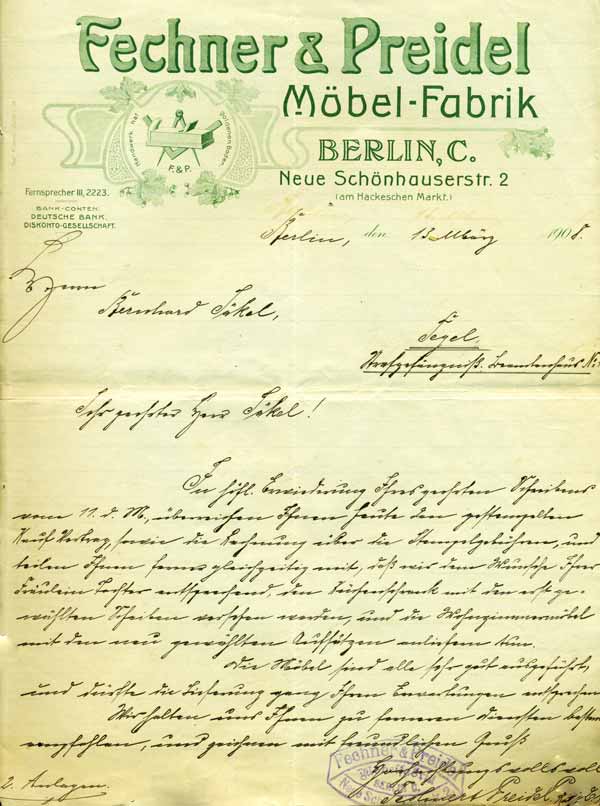 Fechner & Preidel
Möbel-Fabrik
BERLIN, C.
Neue Schönhauserstr. 2
(am Hackeschen Markt.)
Handwerk hat goldenen Boden.
F. & P.
Fernsprecher III, 2223.
BANK-CONTEN:
DEUTSCHE BANK.
DISKONTO-GESELLSCHAFT.
Berlin, den 13 März 1908.
Herrn
Bernhard Täkel,
Tegel.
Strafgefängniß. Beamtenhaus No
Sehr geehrter Herr Täkel!
In höfl. Erwiederung Ihres geehrten Schreibens
vom 11. d. M., überreichen Ihnen heute den gestempelten
Kauf Vertrag, sowie die Rechnung über die Stempelgebühren, und
teilen Ihnen ferner gleichzeitig mit, daß wir dem Wunsche Ihrer
Fräulein Tochter entsprechend, den Küchenschrank mit den erst ge-
wählten Scheiben versehen werden, und die Wohnzimmermöbel
mit den neu gewählten Aufsätzen anliefern
Die Möbel sind alle sehr gut ausgeführt,
und dürfte die Lieferung ganz Ihren Erwartungen entsprechen
Wir halten uns Ihnen zu ferneren diensten bestens
empfohlen, und zeichnen mit freundlichen Gruß
Hochachtungsvoll
Fechner & Preidel
2 Anlagen.
Fechner & Preidel